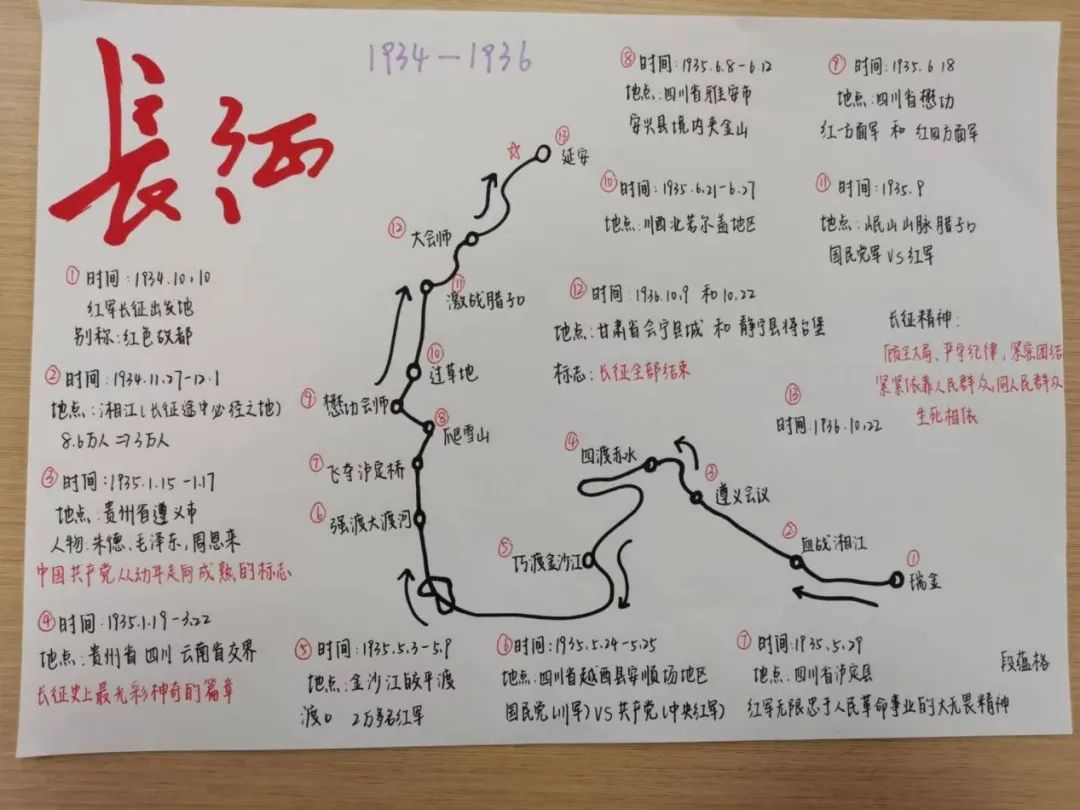 长征
1934—1936
① 时间:1934.10.10
红军长征出发地
别称:红色故都
② 时间:1934.11.27-12.1
地点:湘江(长征途中必经之地)
8.6万人⇒3万人
③ 时间:1935.1.15-1.17
地点:贵州省遵义市
人物:朱德、毛泽东,周恩来
中国共产党从幼年走向成熟的标志
④ 时间:1935.1.19-3.22
地点:贵州省 四川 云南省交界
长征史上最光彩神奇的篇章
⑤ 时间:1935.5.3-5.9
地点:金沙江皎平渡
渡口 2万多名红军
⑥ 时间:1935.5.24-5.25
地点:四川省越西县安顺场地区
国民党(川军)VS共产党(中央红军)
⑦ 时间:1935.5.29
地点:四川省泸定县
红军无限忠于人民革命事业的大无畏精神
⑧ 时间:1935.6.8-6.12
地点:四川省雅安市
安兴县境内夹金山
⑨ 时间:1935.6.18
地点:四川省懋功
红一方面军 和 红四方面军
⑩ 时间:1935.6.21-6.27
地点:川西北若尔盖地区
⑪ 时间:1935.9
地点:岷山山脉腊子口
国民党军VS红军
⑫ 时间:1936.10.9 和10.22
地点:甘肃省会宁县城 和 静宁县将台堡
标志:长征全部结束
⑬
时间:1936.10.22
长征精神:
顾全大局、严守纪律,紧密团结
紧紧依靠人民群众,同人民群众
生死相依
⑬ 延安
⑫ 大会师
⑪ 激战腊子口
⑩ 过草地
⑨ 懋功会师
⑧ 爬雪山
⑦ 飞夺泸定桥
⑥ 强渡大渡河
⑤ 巧渡金沙江
④ 四渡赤水
③ 遵义会议
② 血战湘江
① 瑞金
段蕴格